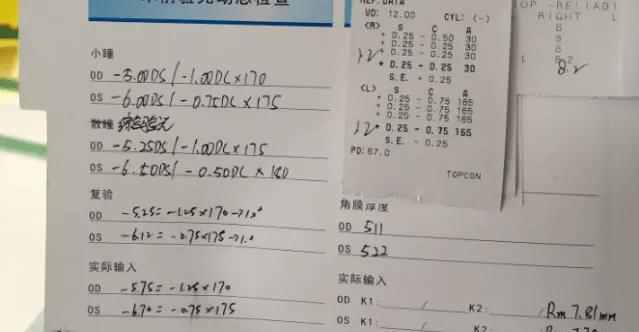 小瞳
OD -5.00DS/-1.00DC×170
OS -6.00DS/-0.75DC×175
散瞳
OD -5.25DS/-1.00DC×175
OS -6.50DS/-0.50DC×180
复验
OD -5.25=-1.25×170→1.0
OS -6.12=-0.75×175→1.0
实际输入
OD -5.75=-1.25×170
OS -6.70=-0.75×175
REF. DATA
VD: 12.00 CYL: (-)
<R> S C A
+ 0.25 - 0.50 30
+ 0.25 - 0.25 30
+ 0.25 - 0.25 30
+ 0.25 - 0.25 30
S.E. + 0.25
<L> S C A
+ 0.25 - 0.75 165
+ 0.25 - 0.75 165
+ 0.25 - 0.75 165
+ 0.25 - 0.75 165
S.E. - 0.25
PD: 67.0
TOPCON
RIGHT L
8
8
8
8.2
8.2
角膜厚度
OD 511
OS 522
实际输入
OD K1: / K2: / Rm 7.81mm
OS K1: K2: